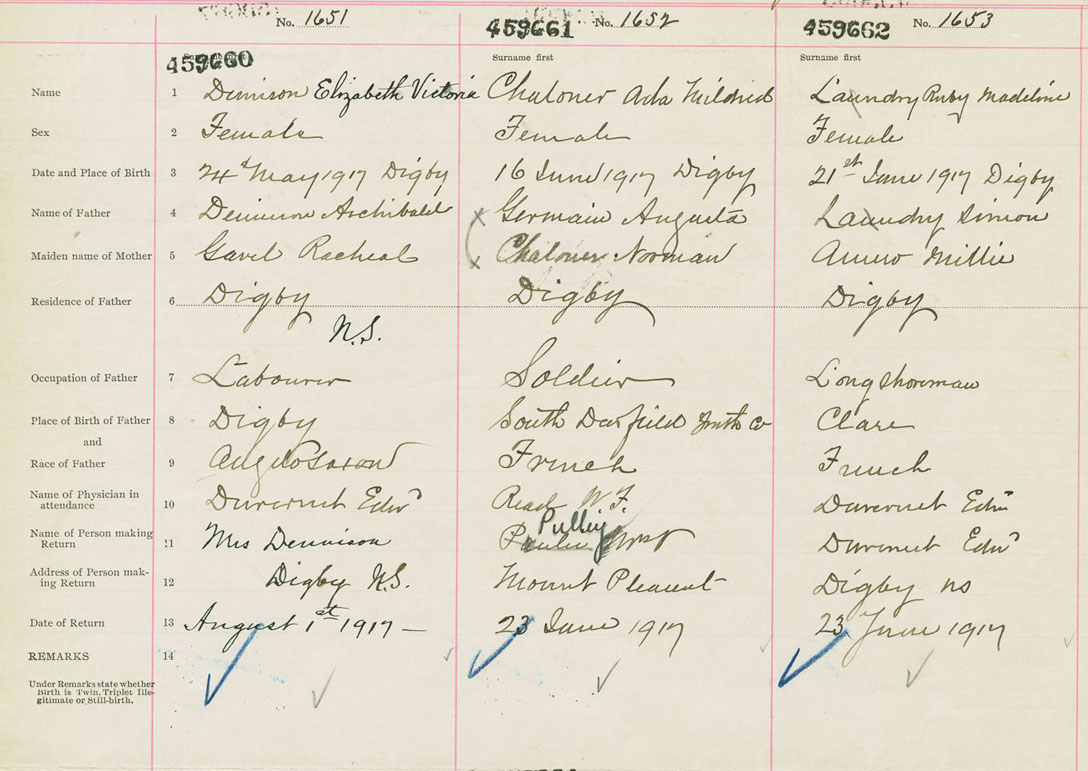 No. 1651
459661 No. 1652
459662 No. 1653
459660
Surname first
Surname first
Name 1 Dennison Elizabeth Victoria Chaloner Ada Mildred Laundry Ruby Madeline
Sex 2 Female Female Female
Date and Place of Birth 3 24 May 1917 Digby 16 June 1917 Digby 21st June 1917 Digby
Name of Father 4 Dennison Archibald Germain Augusta Laundry Simon
Maiden name of Mother 5 Gavel Racheal Chaloner Norman Amero Millie
Residence of Father 6 Digby Digby Digby
N.S.
Occupation of Father 7 Labourer Soldier Longshoreman
Place of Birth of Father 8 Digby South Darfield Co Clare
and
Race of Father 9 Anglo Saxon French French
Name of Physician in
attendance 10 Duvernet Edwd Read W. F. Duvernet Edwd
Name of Person making
Return 11 Mrs Dennison Pulley Duvernet Edwd
Address of Person mak-
ing Return 12 Digby N.S. Mount Pleasant Digby ns
Date of Return 13 August 1st 1917 — 23 June 1917 23 June 1917
REMARKS 14
Under Remarks state whether
Birth is Twin, Triplet Ille-
gitimate or Still-birth.